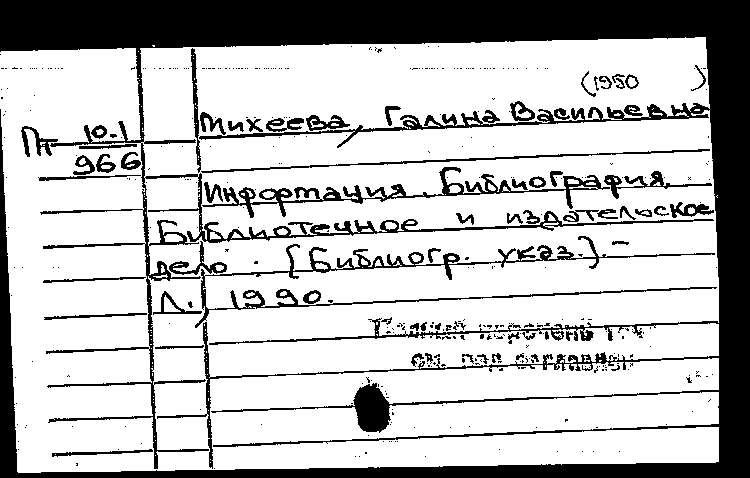 (1950 )
Михеева, Галина Васильевна
Пт 10.1
966
Информация. Библиография.
Библиотечное и издательское
дело : [Библиогр. указ.]. –
Л., 1990.
Полный перечень
см. под заглавием